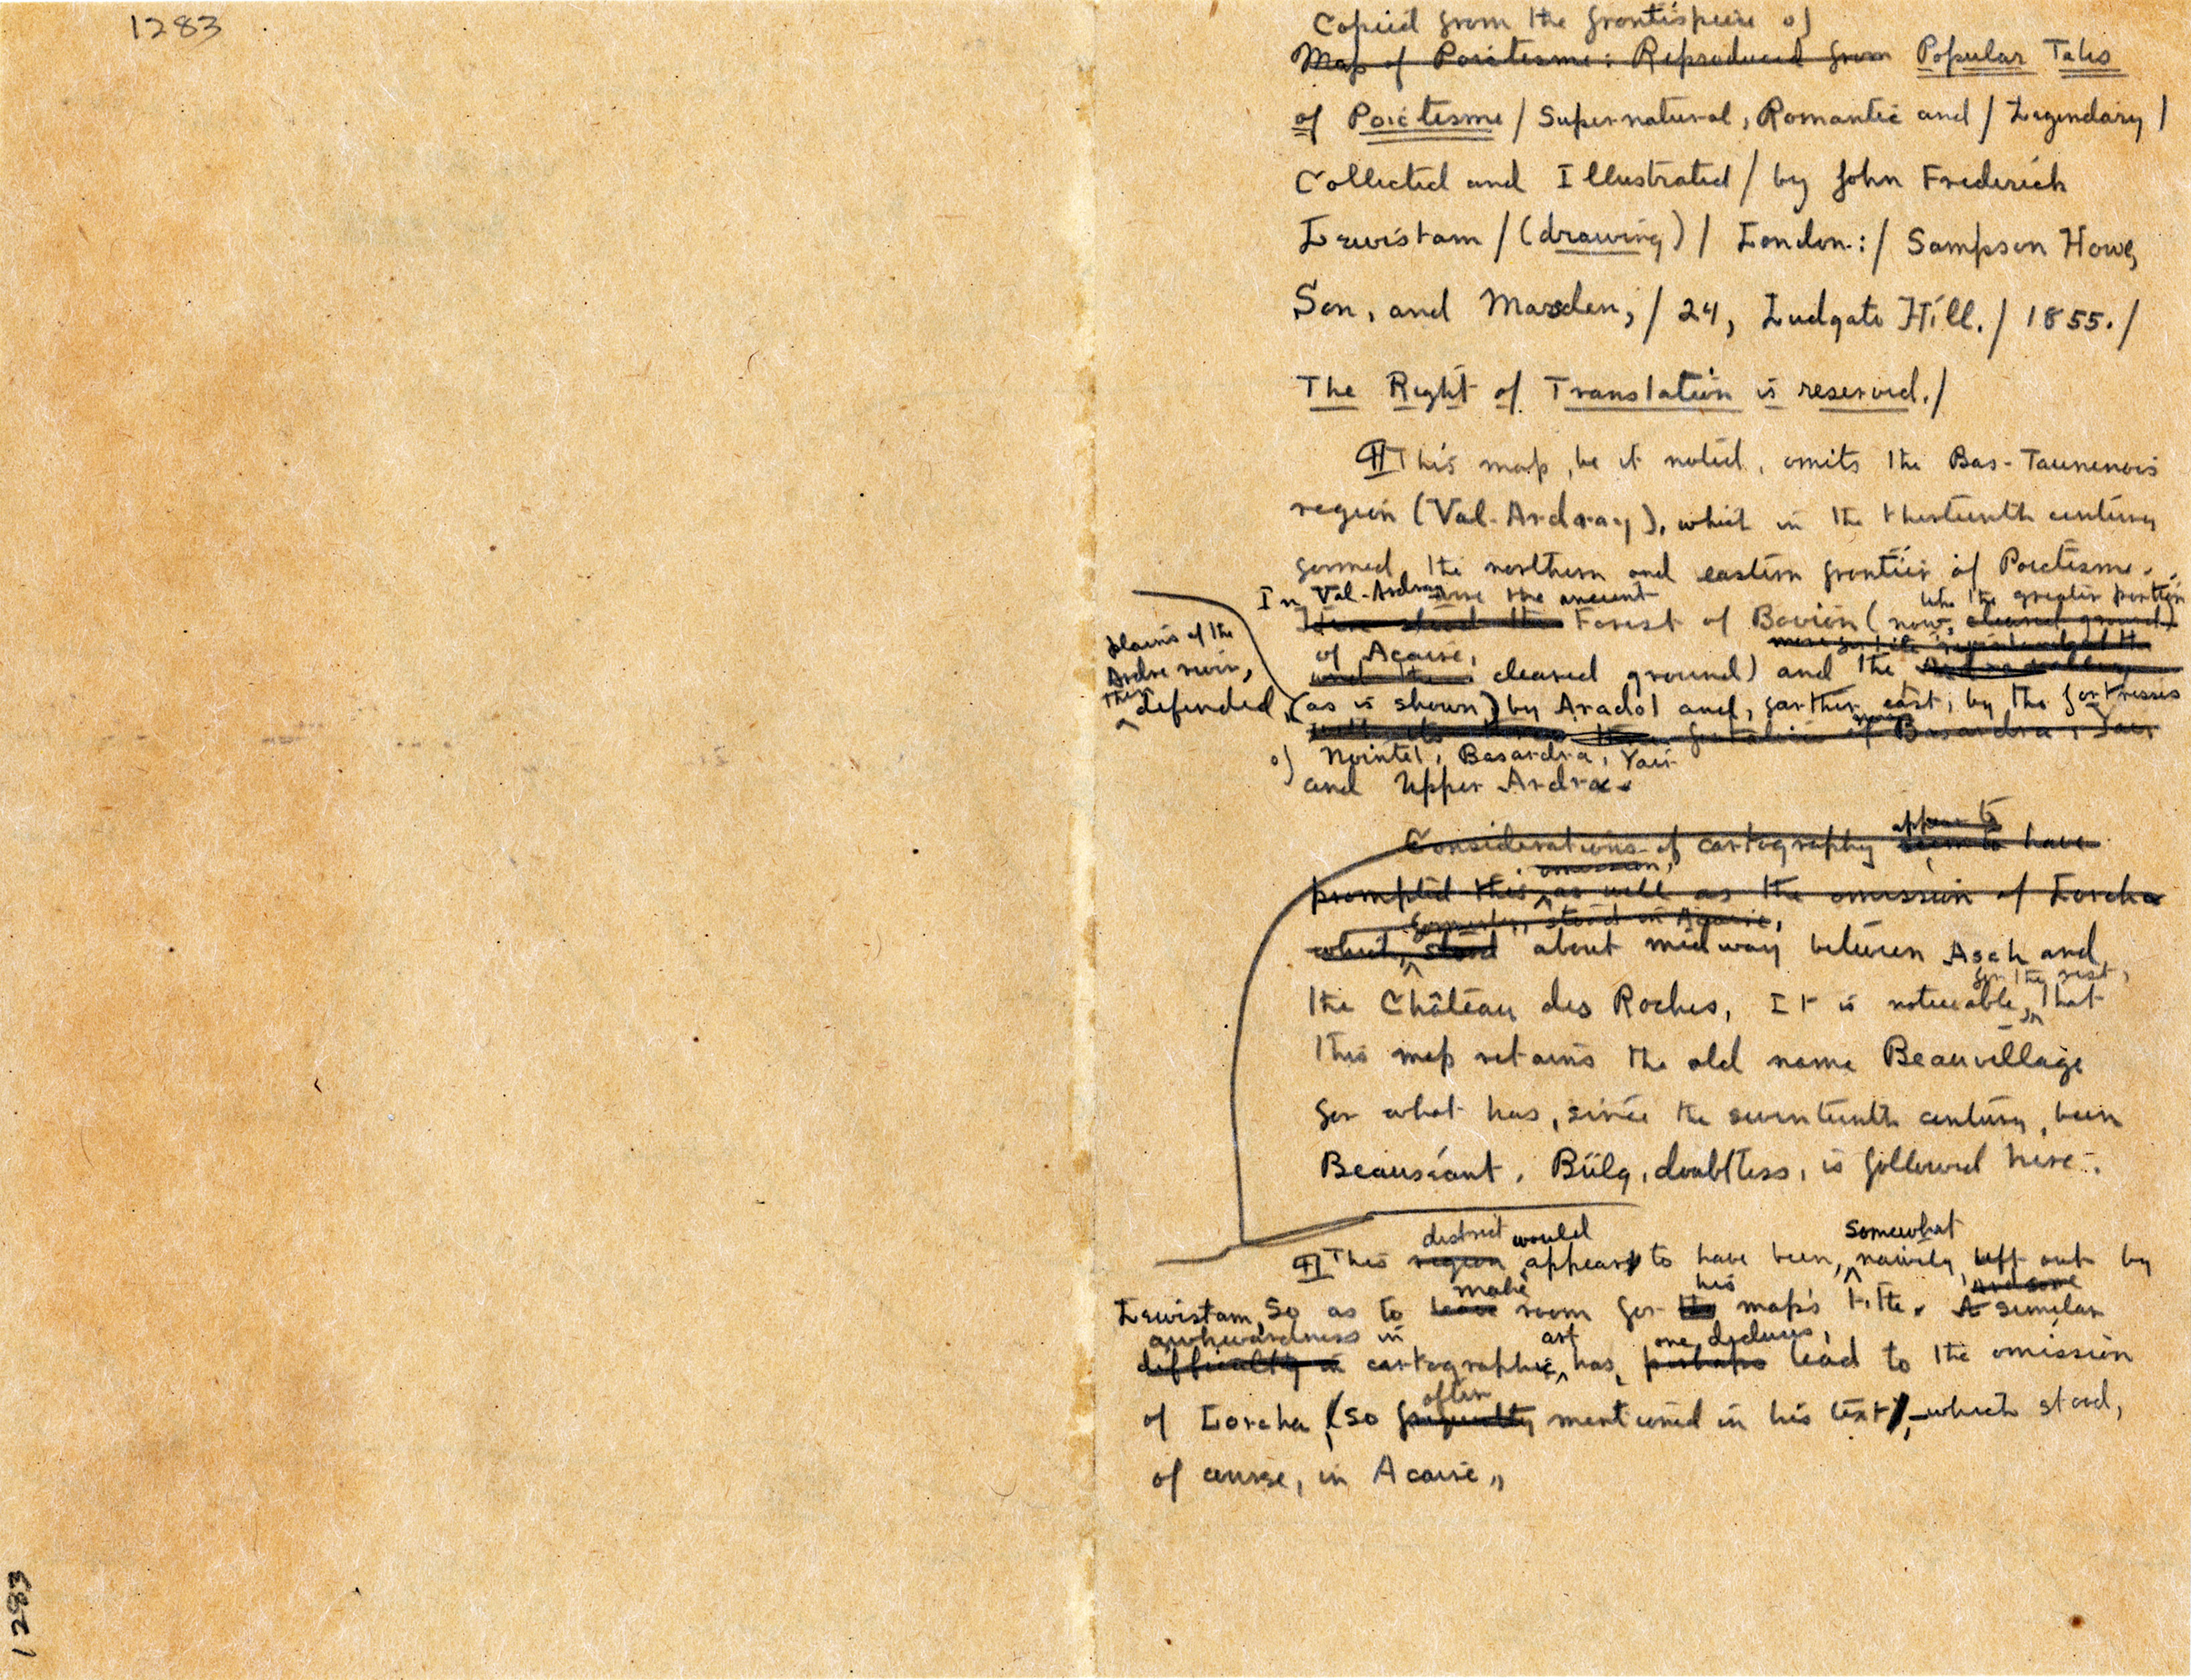 1283
Copied from the frontispiece of
Map of Poictesme: Reproduced from Popular Tales
of Poictesme / Supernatural, Romantic and / Legendary /
Collected and Illustrated / by John Frederick
Lewistam / (drawing) / London: / Sampson Howe,
Son, and Marsden, / 24, Ludgate Hill. / 1855. /
The Right of Translation is reserved. /
¶ This map, be it noted, omits the Bas-Taunenois
region (Val-Ardray), which in the thirteenth century
formed the northern and eastern frontier of Poictesme.
In Val-Ardray are the ancient
like the greater portion
Here stood the Forest of Bovion (now, cleared ground)
of Acaire,
plains of the
Ardre river,
and the cleared ground) and the
then defended, (as is shown) by Aradol and, farther east, by the fortresses
of Nointel, Basardra, Yair
and Upper Ardra.
appear to
Considerations of cartography seem to have
omission,
prompted this as well as the omission of Lorcha
formerly, stood in Acaire,
which, stood about midway between Asch and
for the rest,
the Château des Roches. It is noticeable, that
this map retains the old name Beauvillage
for what has, since the seventeenth century, been
Beauséant. Bülg, doubtless, is followed here.
district would somewhat
¶ This region appears to have been, naïvely, left out by
make his and some
Lewistam, so as to leave room for the map's title. A similar
awkwardness in art one deduces,
difficulty in cartographic has, perhaps lead to the omission
often
of Lorcha (so frequently mentioned in his text), which stood,
of course, in Acaire,,
1283